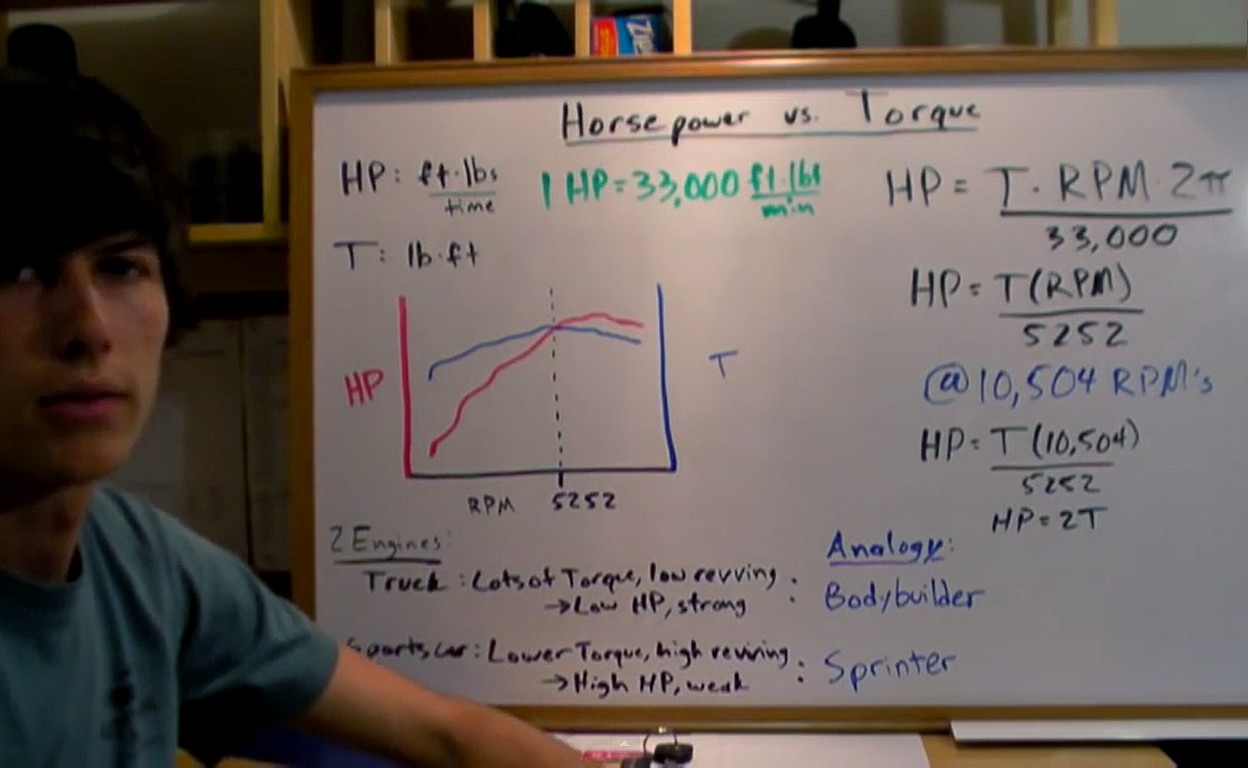 Horsepower vs. Torque
HP: ft·lbs
time
1 HP = 33,000 ft·lbs
min
T: lb·ft
HP
T
RPM 5252
HP = T·RPM·2π
33,000
HP = T(RPM)
5252
@10,504 RPM's
HP = T(10,504)
5252
HP = 2T
2 Engines:
Truck: Lots of Torque, low revving : Bodybuilder
→Low HP, strong
Analogy:
Sports car: Lower Torque, high revving : Sprinter
→High HP, weak